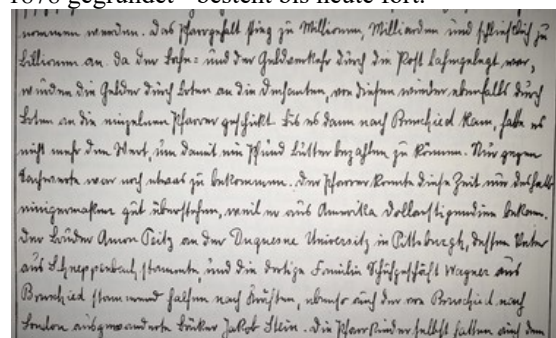 1878 gegründet - besteht bis heute fort.
nommen werden. Das Pfarrgehalt stieg zu Millionen, Milliarden und schließlich zu
Billionen an. Da der Bahn= und der Geldverkehr durch die Post lahmgelegt war,
wurden die Gelder durch Boten an die Dechanten, von diesen wieder ebenfalls durch
Boten an die einzelnen Pfarrer geschickt. Bis es dann nach Bruschied kam, habe es
nicht mehr den Wert, um damit ein Pfund Butter bezahlen zu können. Nur gegen
Sachwerte war noch etwas zu bekommen. Der Pfarrer konnte diese Zeit nur deshalb
einigermaßen gut überstehen, weil er aus Amerika Dollarstipendien bekam.
Der Bruder Amon Peitz an der Duquesne University in Pittsburgh, dessen Vater
aus Schneppenbach stammte, und die dortige Familie Schuhgeschäft Wagner aus
Bruschied stammend halfen nach Kräften, ebenso auch der von Bruschied nach
London ausgewanderte Bäcker Jakob Stein. Die Pfarrkinder selbst hatten auch dem